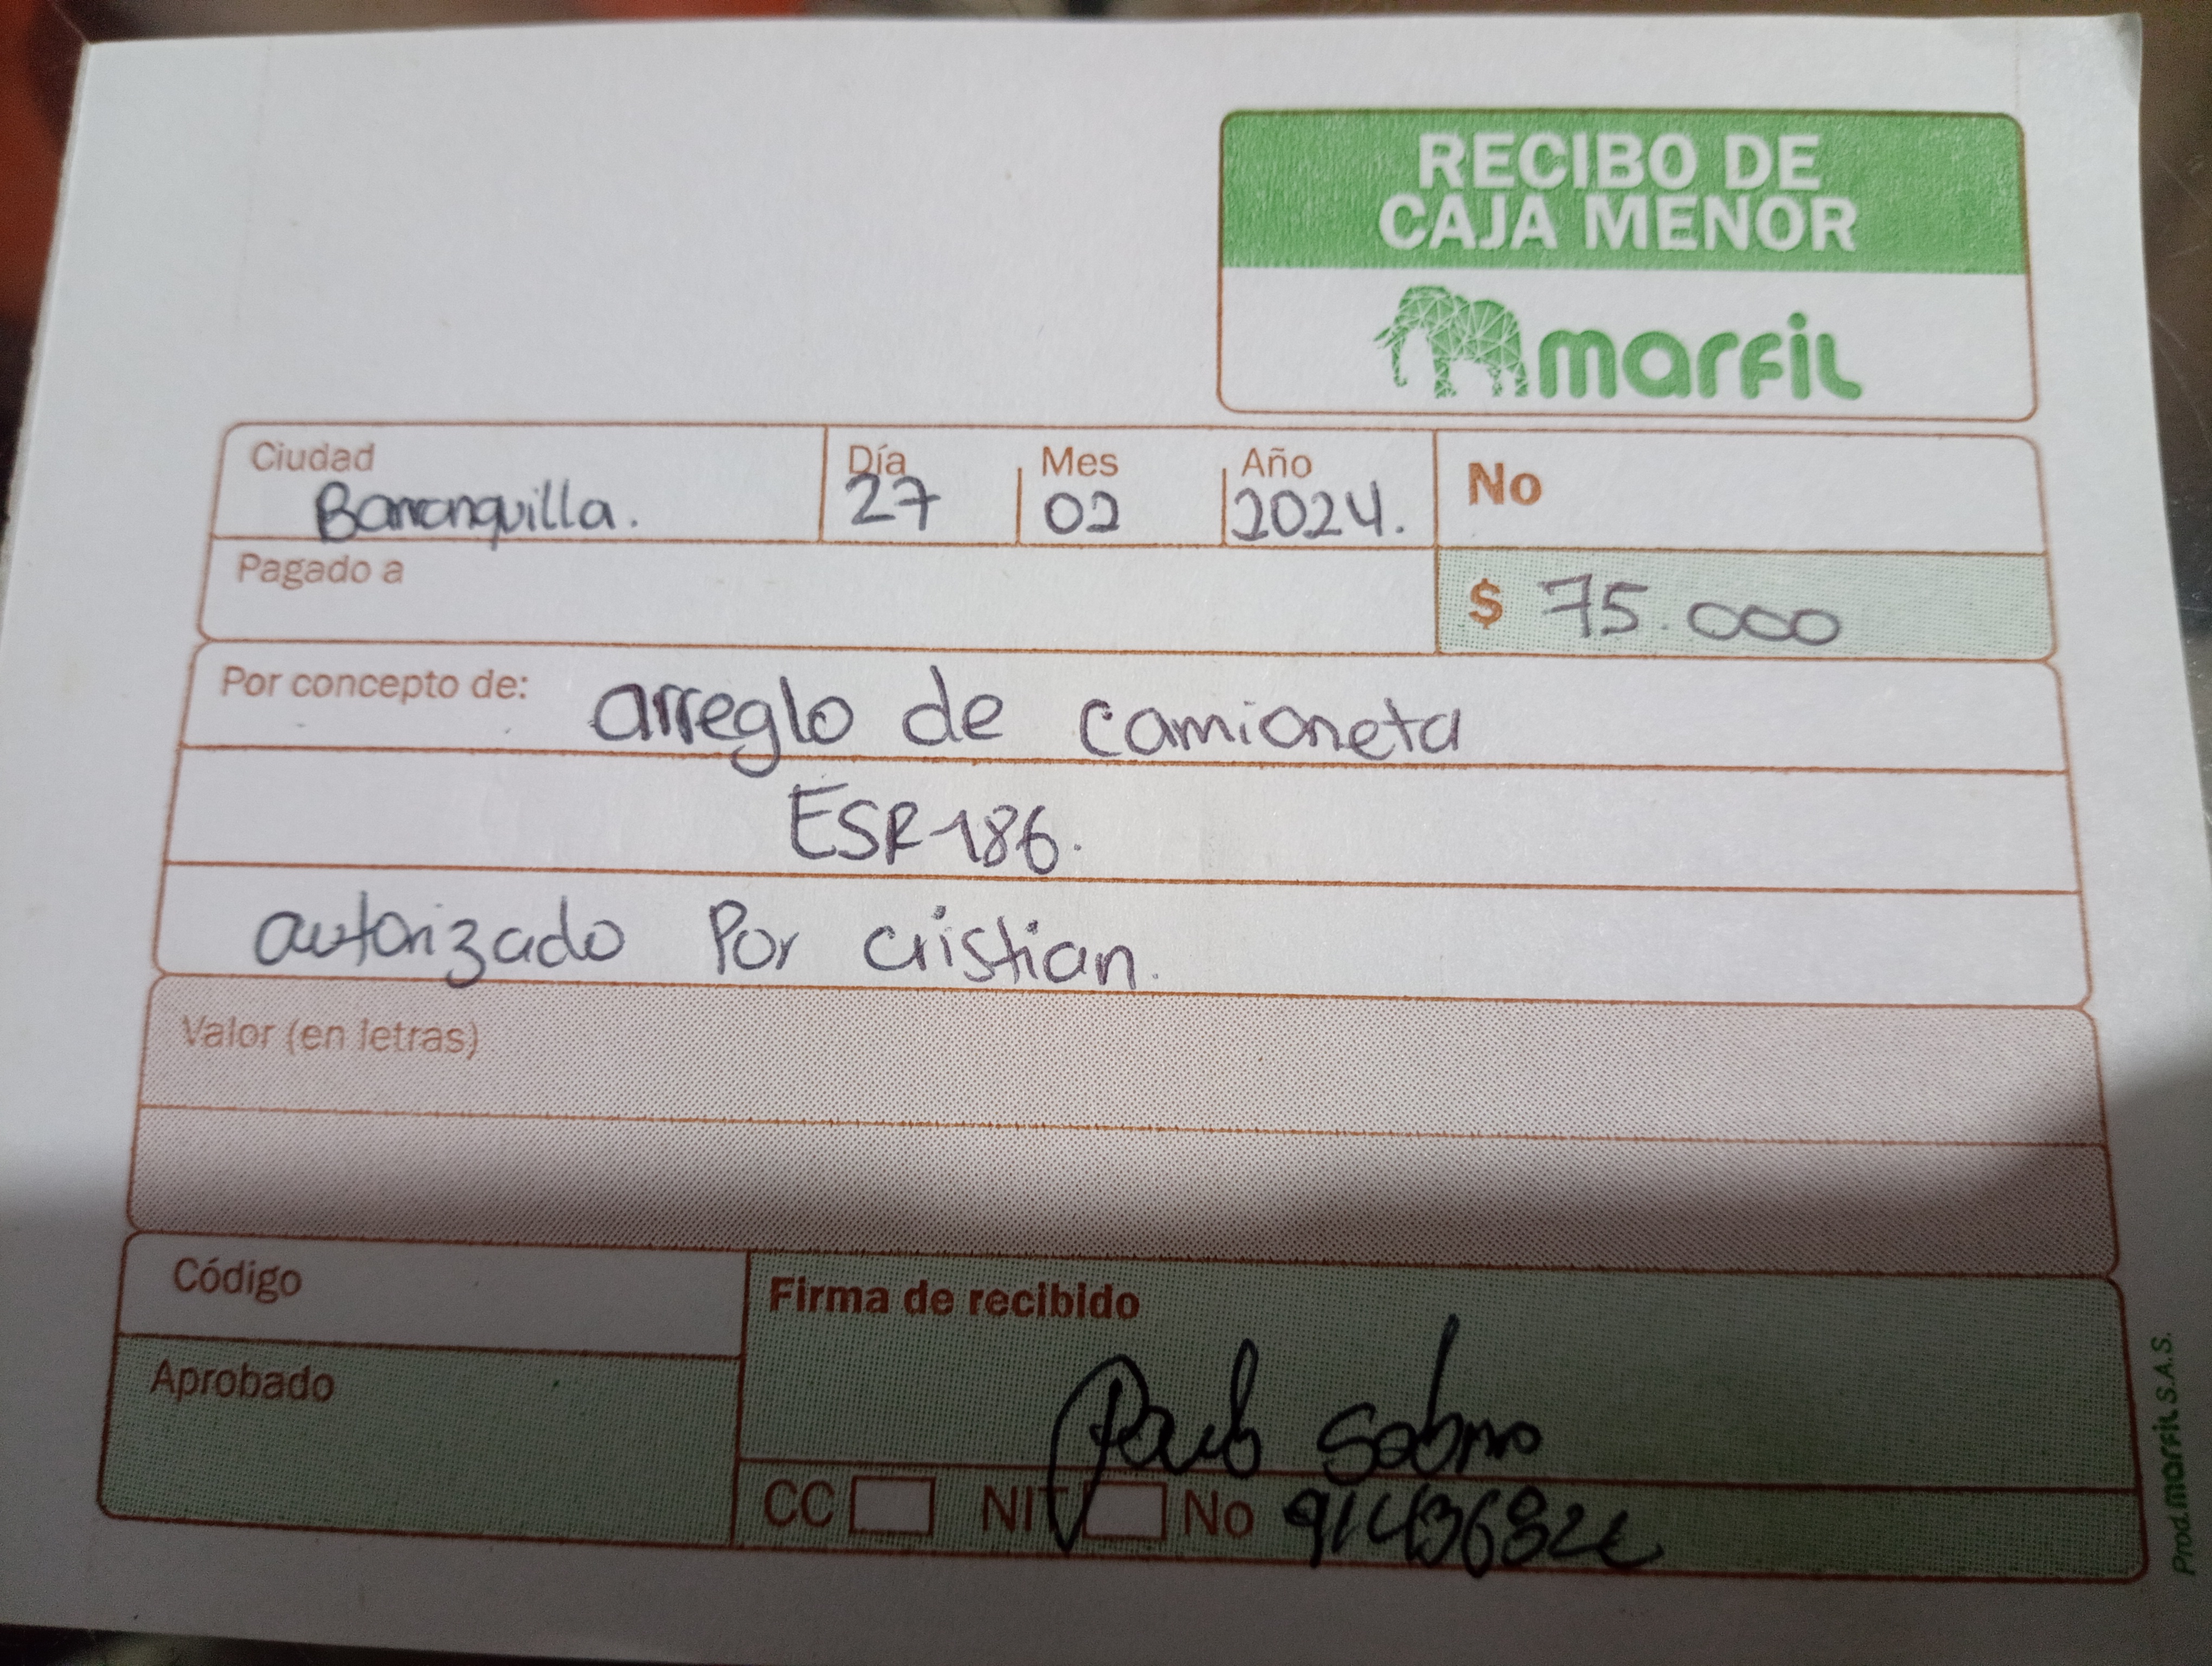 RECIBO DE
CAJA MENOR
marfil
Ciudad
Barranquilla.
Día
27
Mes
02
Año
2024.
No
Pagado a
$ 75.000
Por concepto de: arreglo de camioneta
ESR-186.
autorizado Por cristian.
Valor (en letras)
Código
Firma de recibido
Aprobado
CC NIT No
Prod. marfil S.A.S.